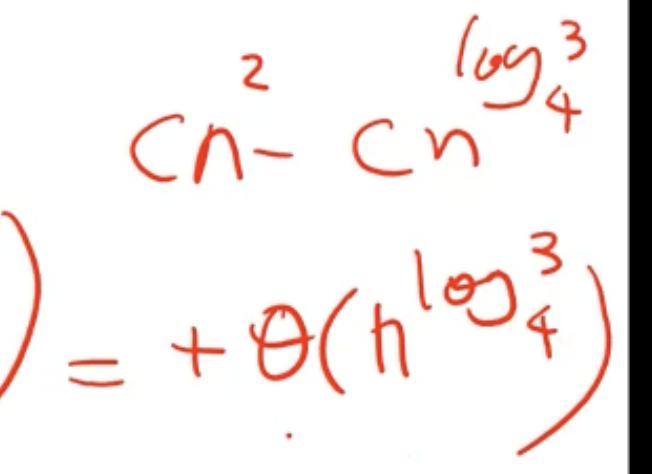 cn² - cn^{log₄3}
) = + θ(n^{log₄3})